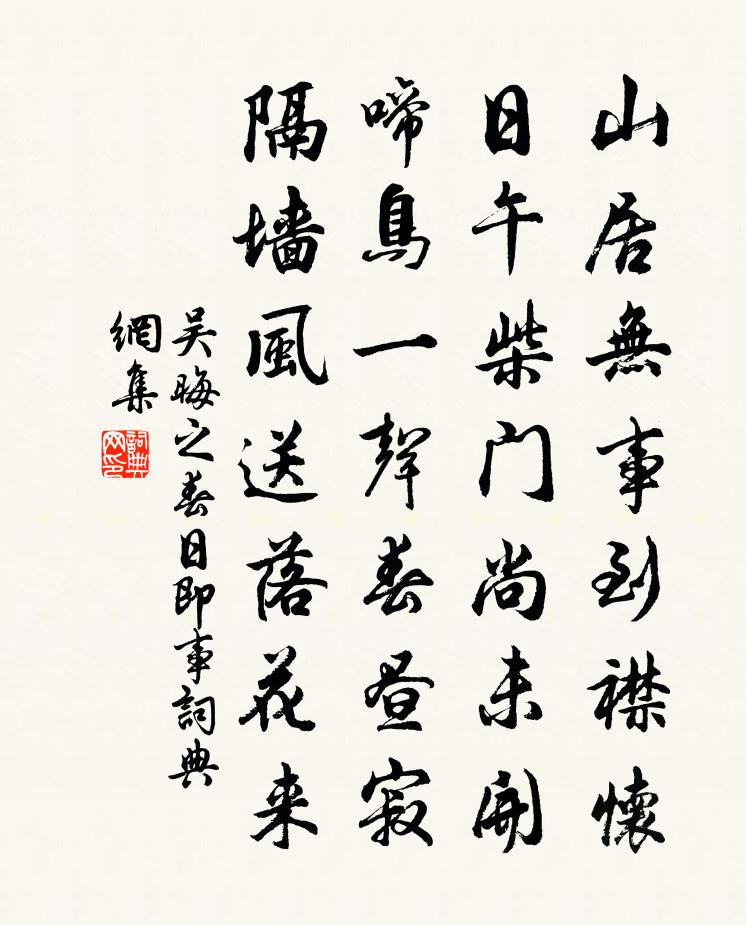 山居無事到襟懷
日午柴门尚未開
啼鳥一聲春昼寂
隔墙風送落花来
吴晦之春日即事詞典
網集
詞典
网印